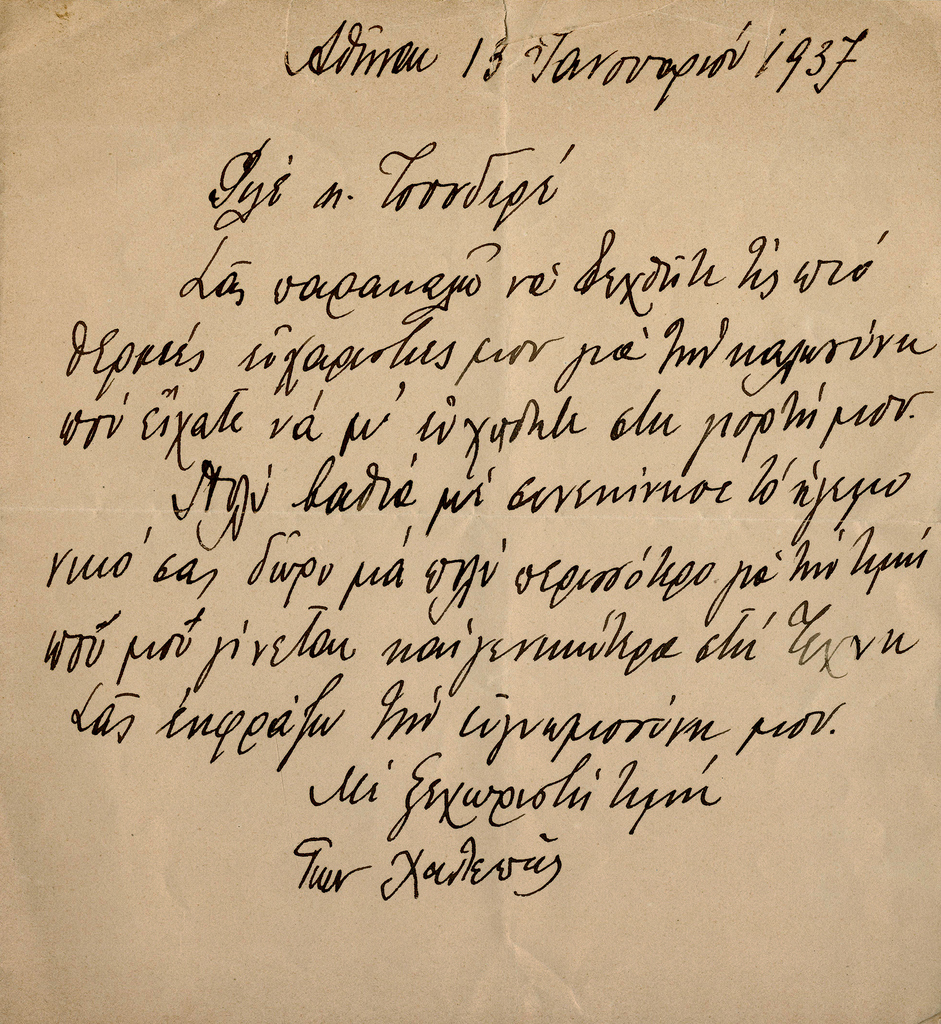 Ἀθῆναι 13 Ἰανουαρίου 1937
Φιλέ κ. Τσουδερέ
Σᾶς παρακαλῶ νὰ δεχθῆτε τὶς πιὸ
θερμές εὐχαριστίες μου γιὰ τὴν καλωσύνη
ποὺ εἴχατε νά μ' εὐχηθῆτε στη γιορτή μου.
Πολύ βαθιά μέ συνεκίνησε τό ἡγεμο
νικό σας δῶρο μά πολύ περισσότερο γιὰ τὴν τιμή
ποῦ μοῦ γίνεται και γενικώτερα στὴ Τέχνη
Σᾶς ἐκφράζω τὴν εὐγνωμοσύνη μου.
Μέ ξεχωριστή τιμή
Γιαν Χαλεπᾶς